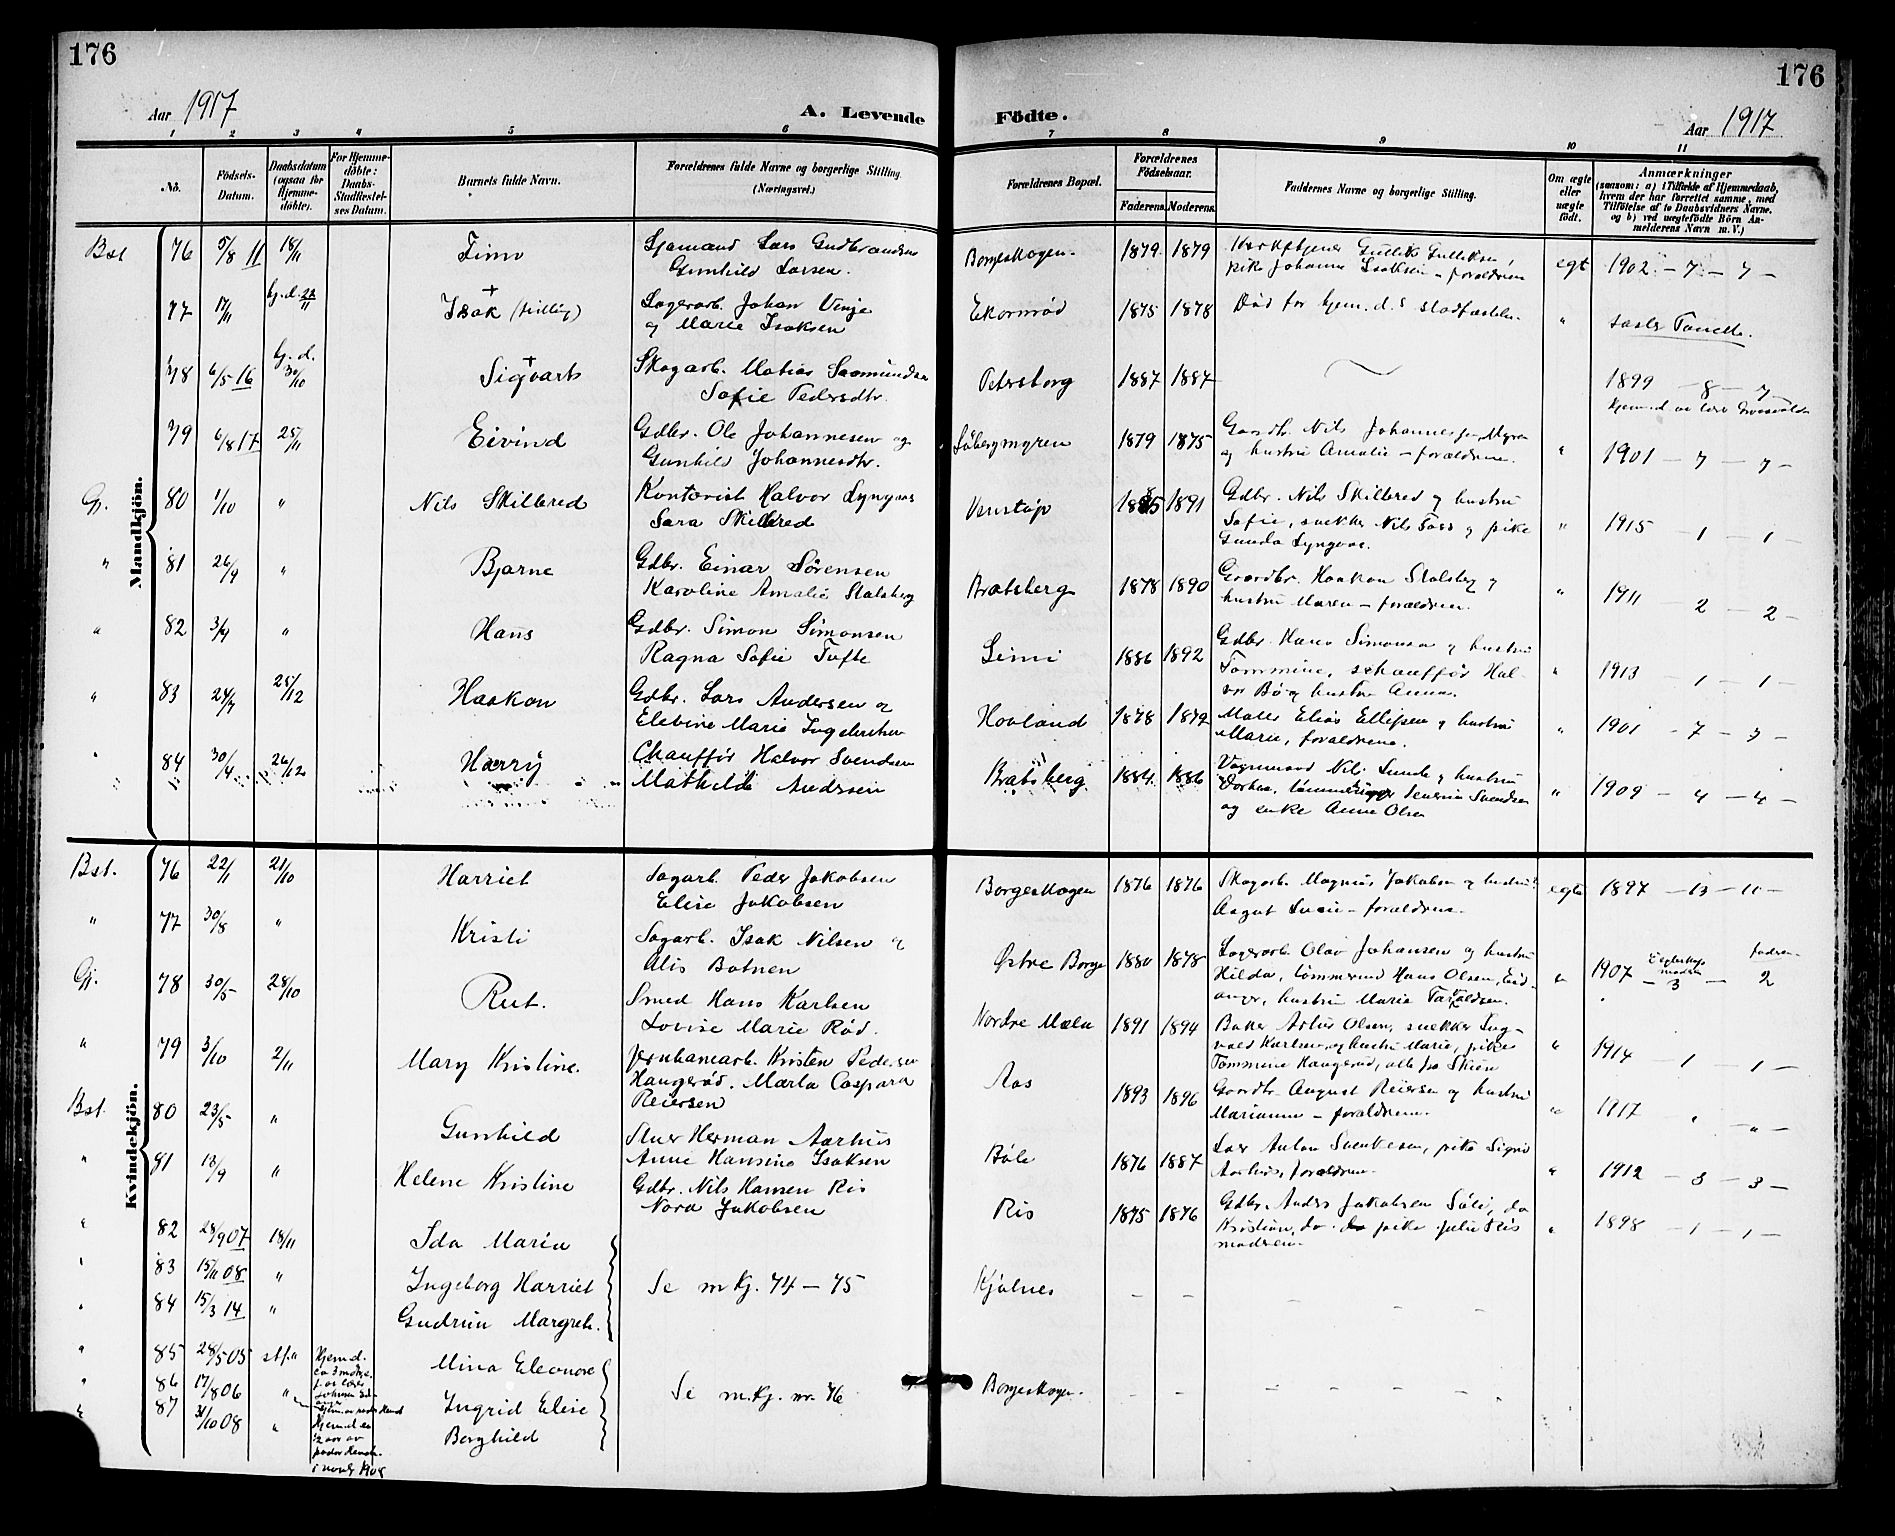 176
176
Aar 1917
A. Levende
Födte.
Aar 1917
1 2 3 4 5 6 7 8 9 10 11
No.
Födsels-
Datum.
Daabsdatum
(ogsaa for
Hjemme-
döbte).
For Hjemme-
döbte:
Daabs-
Stadfæstel-
ses Datum.
Barnets fulde Navn.
Forældrenes fulde Navne og borgerlige Stilling.
(Næringsvei.)
Forældrenes Bopæl.
Forældrenes
Födselsaar.
Faderens.
Moderens.
Faddernes Navne og borgerlige Stilling.
Om ægte
eller
uægte
födt.
Anmærkninger
(saasom: a) i Tilfælde af Hjemmedaab,
hvem der har forrettet samme, med
Tilföielse af to Daabsvidners Navne,
og b) ved uægtefödte Börn An-
melderens Navn m. V.)
Mandkjön.
Bst 76 5/8 11 18/11 Finn
Sjømand Lars Gudbrandsen
Gunhild Larsen.
Borgeskogen. 1879 1879
Kirketjener Gullik Gulliksen,
pike Johanne Isaksen – forældrene
egt 1902 – 7 – 7 –
77 17/11 hj.d. 22/11 Isak (tvilling) +
Sagarb. Johan Vinje
og Marie Isaksen
Ekornrød 1875 1878
Død før hjem.d.s stadfæstelse.
" søster Tomelle.
78 6/5 16 hj.d. 30/10 Sigvart +
Skogarb. Matias Saamundsen
Sofie Pedersdtr.
Petersborg 1887 1887
1899 – 8 – 7
79 6/8 17 25/11 Eivind
Gdbr. Ole Johannesen og
Gunhild Johannesdtr.
Søbergmyren 1879 1875
Gaardbr. Nils Johannesen, Myren
og hustru Amalie – forældrene.
" 1901 – 7 – 7 –
Gj. 80 1/10 " Nils Skilbred
Kontorist Halvor Lyngaas
Sara Skilbred
Venstøp 1885 1891
Gdbr. Nils Skilbred og hustru
Sofie, snekker Nils Foss og pike
Gunda Lyngaas.
" 1915 – 1 – 1 –
" 81 26/9 " Bjarne
Gdbr. Einar Sørensen
Karoline Amalie Stalsberg
Bratsberg 1878 1890
Gaardbr. Haakon Stalsberg og
hustru Maren – forældrene.
" 1911 – 2 – 2 –
" 82 3/9 " Hans
Gdbr. Simon Simonsen
Ragna Sofie Tufte
Limi 1886 1892
Gdbr. Hans Simonsen og hustru
Tommine, schauffør Hal-
vor Bø og hustru Anna.
" 1913 – 1 – 1 –
" 83 24/9 25/12 Haakon
Gdbr. Lars Andersen og
Elevine Marie Ingebretsen
Hovland 1878 1879
Maler Elias Ellefsen og hustru
Marie, forældrene.
" 1901 – 7 – 7 –
" 84 30/4 26/12 Harry
Chauffør Halvor Svendsen
Mathilde Andersen
Bratsberg 1884 1886
Vognmand Nils Lunde og hustru
Dorthea, tømmerhugger Severin Svendsen
og enke Anne Olsen
" 1909 – 4 – 4 –
Kvindekjön.
Bst. 76 22/1 21/10 Harriet
Sagarb. Peder Jakobsen
Elise Jakobsen
Borgeskogen 1876 1876
Skogarb. Magnus Jakobsen og hustru
Aagot Lucie – forældrene.
egte 1897 – 13 – 10 –
" 77 30/8 " Kristi
Sagarb. Isak Nilsen og
Alis Botnen
Østre Borge 1880 1878
Lagerarb. Olav Johansen og hustru
Hilda, tømmermand Hans Olsen, Eid-
anger, hustru Maria Taraldsen.
" 1907 – 3 – 2
Gj. 78 30/5 28/10 Rut.
Smed Hans Karlsen
Lovise Marie Rød.
Nordre Mæla 1891 1894
Baker Artur Olsen, snekker Ing-
vald Karlsen og hustru Marie, pike
Tommine Haugerød, alle fra Skien
" 1914 – 1 – 1 –
" 79 3/10 2/11 Mary Kristine.
Jernbanearb. Kristen Pedersen
Haugerød. Marta Caspara
Reiersen
Aas 1893 1896
Gaardbr. August Reiersen og hustru
Marianne – forældrene.
" 1917 – " – " –
Bst. 80 23/5 " Gunhild
Stuer Herman Aarhus
Anne Hansine Isaksen
Bøle 1876 1887
Anton Svenkesen, pike Sigrid
Aarhus, forældrene.
" 1912 – 3 – 3 –
" 81 18/9 " Helene Kristine
Gdbr. Nils Hansen Ris
Nora Jakobsen
Ris 1875 1876
Gdbr. Anders Jakobsen Søli, do
Kristian, do. pike Julie Ris
modren.
" 1898 – 1 – 1 –
" 82 28/9 07 18/11 Ida Maria
" 83 15/11 08 " Ingeborg Harriet
" 84 15/3 14 " Gudrun Margrete.
Se m.kj. 74 – 75
Kjølnes – – – – – –
" 85 28/5 05 stf. " Mina Eleonore
" 86 17/8 06 " Ingrid Elise
" 87 31/10 08 " Borghild
hjemd.
hjemd. ca
1/2 aar av
Se m.kj. nr. 76
Borgeskogen. – – – – – –